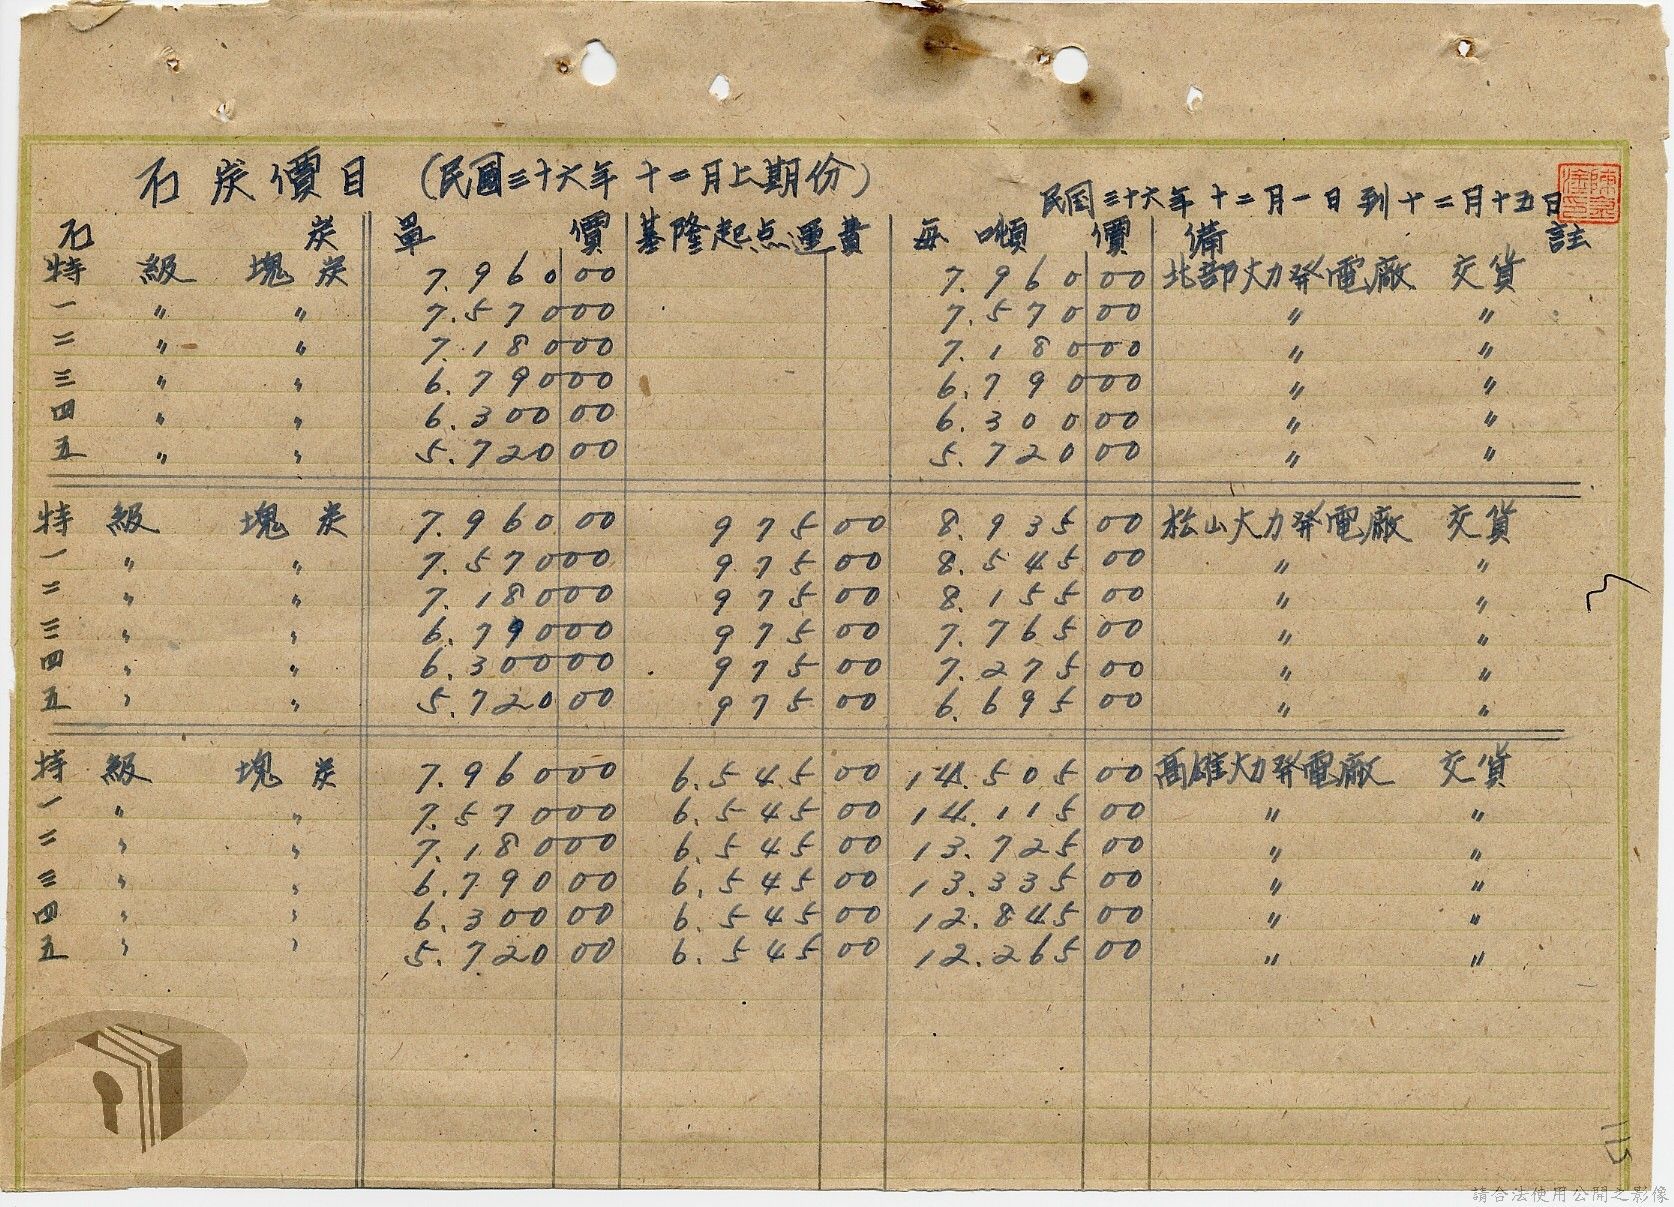 石炭價目 (民國三十六年十二月上期份)
民国三十六年十二月一日到十二月十五日
石炭 單價 基隆起点運費 每噸價 備註
特級塊炭 7.960 00 7.960 00 北部火力発電廠 交貨
一 〃 〃 7.570 00 7.570 00 〃 〃
二 〃 〃 7.180 00 7.180 00 〃 〃
三 〃 〃 6.790 00 6.790 00 〃 〃
四 〃 〃 6.300 00 6.300 00 〃 〃
五 〃 〃 5.720 00 5.720 00 〃 〃
特級塊炭 7.960 00 975 00 8.935 00 松山火力発電廠 交貨
一 〃 〃 7.570 00 975 00 8.545 00 〃 〃
二 〃 〃 7.180 00 975 00 8.155 00 〃 〃
三 〃 〃 6.790 00 975 00 7.765 00 〃 〃
四 〃 〃 6.300 00 975 00 7.275 00 〃 〃
五 〃 〃 5.720 00 975 00 6.695 00 〃 〃
特級塊炭 7.960 00 6.545 00 14.505 00 高雄火力発電廠 交貨
一 〃 〃 7.570 00 6.545 00 14.115 00 〃 〃
二 〃 〃 7.180 00 6.545 00 13.725 00 〃 〃
三 〃 〃 6.790 00 6.545 00 13.335 00 〃 〃
四 〃 〃 6.300 00 6.545 00 12.845 00 〃 〃
五 〃 〃 5.720 00 6.545 00 12.265 00 〃 〃
請合法使用公開之影像